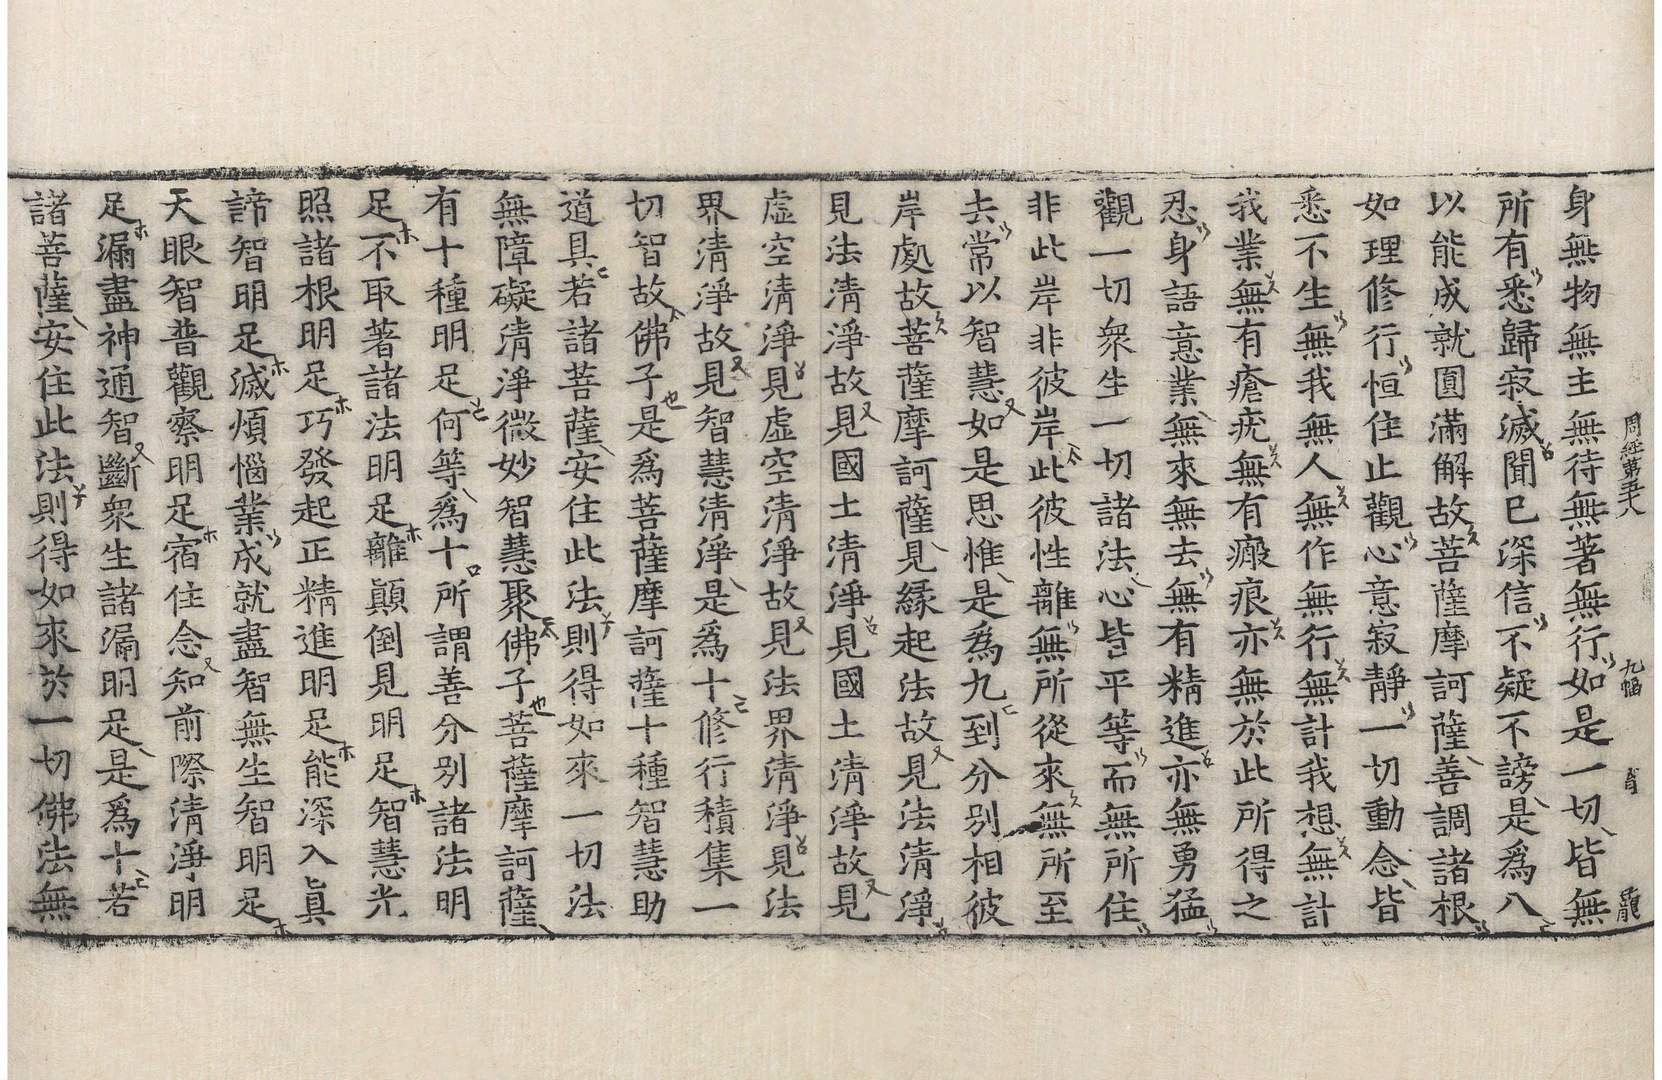 周經第五十八 九幅 育 龍
身無物無主無待無著無行如是一切皆無
所有悉歸寂滅聞已深信不疑不謗是爲八
以能成就圓滿解故菩薩摩訶薩善調諸根
如理修行恒住止觀心意寂靜一切動念皆
悉不生無我無人無作無行無計我想無計
我業無有瘡疣無有瘢痕亦無於此所得之
忍身語意業無來無去無有精進亦無勇猛
觀一切衆生一切諸法心皆平等而無所住
非此岸非彼岸此彼性離無所從來無所至
去常以智慧如是思惟是爲九到分別相彼
岸處故菩薩摩訶薩見緣起法故見法清淨
見法清淨故見國土清淨見國土清淨故見
虛空清淨見虛空清淨故見法界清淨見法
界清淨故見智慧清淨是爲十修行積集一
切智故佛子是爲菩薩摩訶薩十種智慧助
道具若諸菩薩安住此法則得如來一切法
無障礙清淨微妙智慧聚佛子菩薩摩訶薩
有十種明足何等爲十所謂善分別諸法明
足不取著諸法明足離顚倒見明足智慧光
照諸根明足巧發起正精進明足能深入眞
諦智明足滅煩惱業成就盡智無生智明足
天眼智普觀察明足宿住念知前際清淨明
足漏盡神通智斷衆生諸漏明足是爲十若
諸菩薩安住此法則得如來於一切佛法無